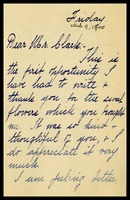 Friday
Dear Mr. Clark:-
This is
the first opportunity I
have had to write &
thank you for the
flowers which you brought
me. It was so kind &
thoughtful of you & I
do appreciate it very
much.
I am feeling better